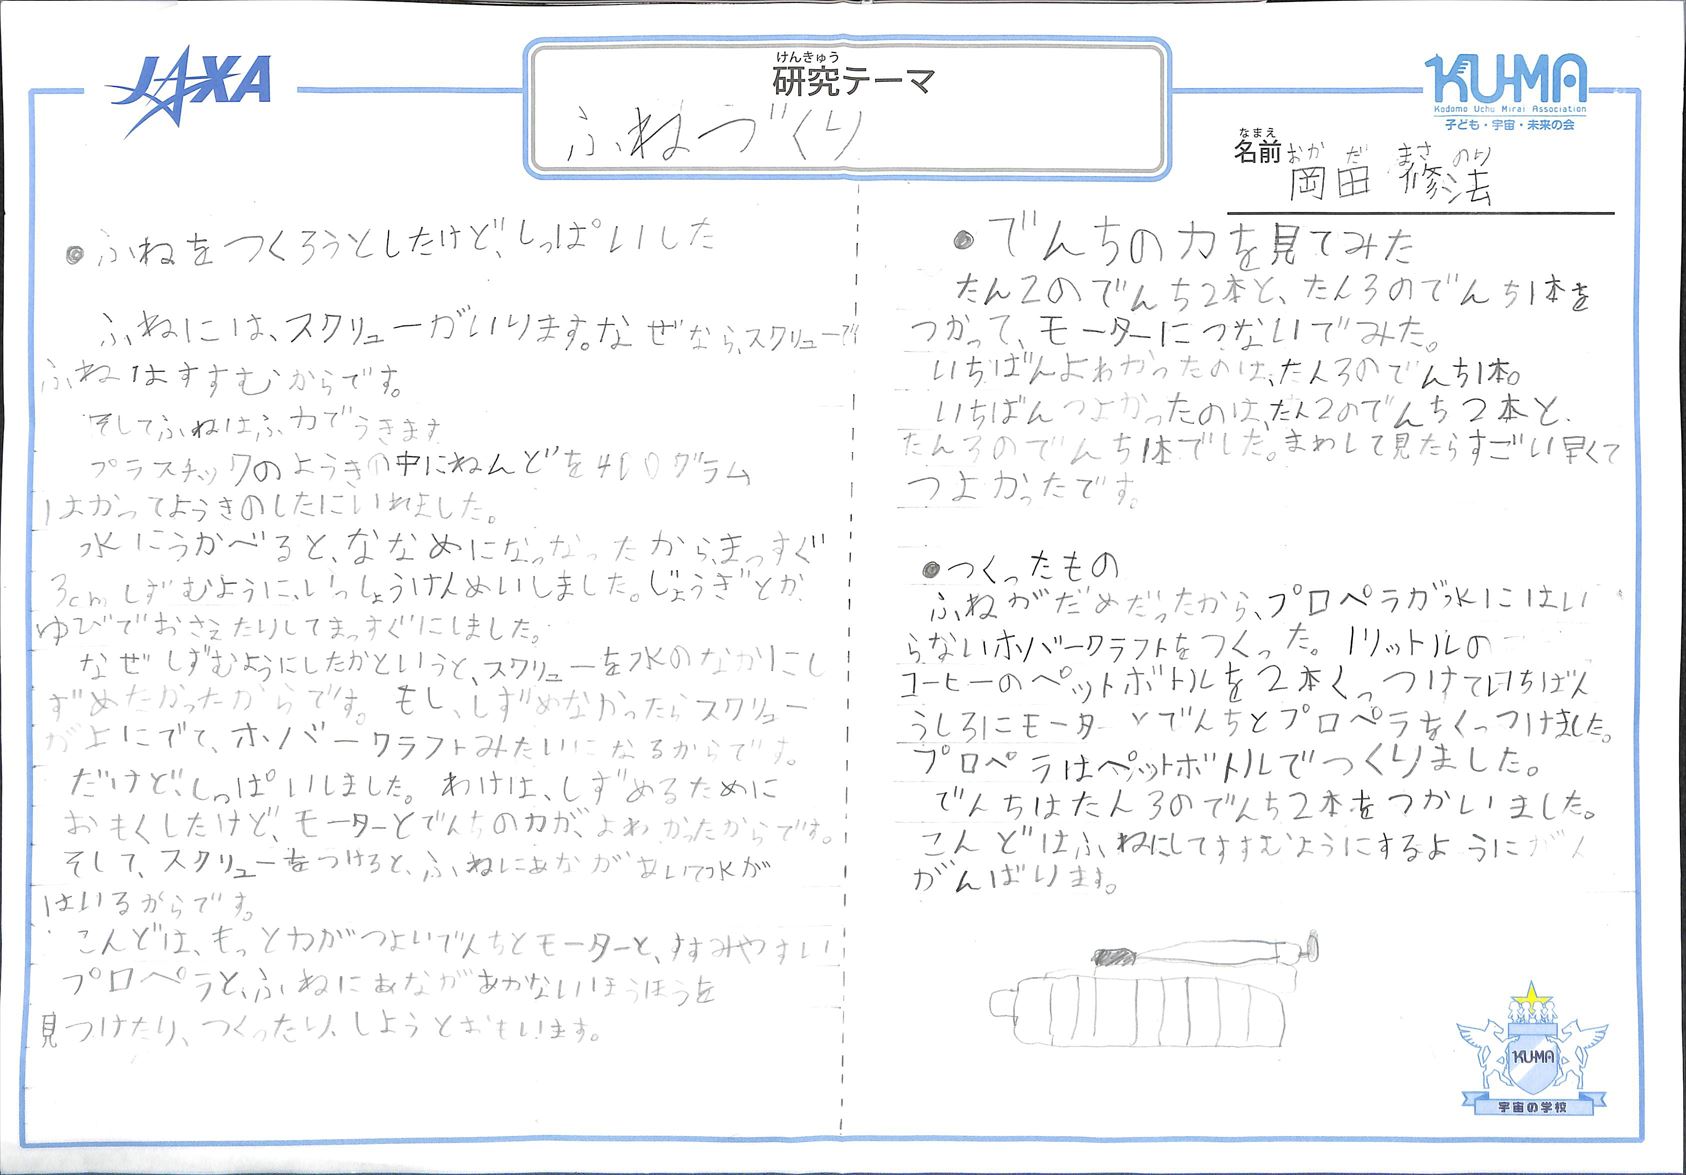 JAXA
けんきゅう
研究テーマ
ふねづくり
KU-MA
Kodomo Uchu Mirai Association
子ども・宇宙・未来の会
なまえ
名前
おか だ まさ のり
岡田 修法
●ふねをつくろうとしたけど、しっぱいした
ふねには、スクリューがいります。なぜなら、スクリューで
ふねはすすむからです。
そしてふねはふ力でうきます
プラスチックのようきの中にねんどを400グラム
はかってようきのしたにいれました。
水にうかべると、ななめになっなったから、まっすぐ
3cmしずむように、いっしょうけんめいしました。じょうぎとか、
ゆびでおさえたりしてまっすぐにしました。
なぜしずむようにしたかというと、スクリューを水のなかにし
ずめたかったからです。もし、しずめなかったらスクリュー
が上にでて、ホバークラフトみたいになるからです。
だけど、しっぱいしました。わけは、しずめるために
おもくしたけど、モーターとでんちの力が、よわかったからです。
そして、スクリューをつけると、ふねにあながあいて水が
はいるからです。
こんどは、もっと力がつよいでんちとモーターと、すすみやすい
プロペラと、ふねにあながあかないほうほうを
見つけたり、つくったり、しようとおもいます。
●でんちの力を見てみた
たん2のでんち2本と、たん3のでんち1本を
つかって、モーターにつないでみた。
いちばんよわかったのは、たん3のでんち1本。
いちばんつよかったのは、たん2のでんち2本と、
たん3のでんち1本でした。まわして見たらすごい早くて
つよかったです。
●つくったもの
ふねがだめだったから、プロペラが水にはい
らないホバークラフトをつくった。1リットルの
コーヒーのペットボトルを2本くっつけていちばん
うしろにモーターとでんちとプロペラをくっつけました。
プロペラはペットボトルでつくりました。
でんちはたん3のでんち2本をつかいました。
こんどはふねにしてすすむようにするようにがん
がんばります。
KU-MA
宇宙の学校